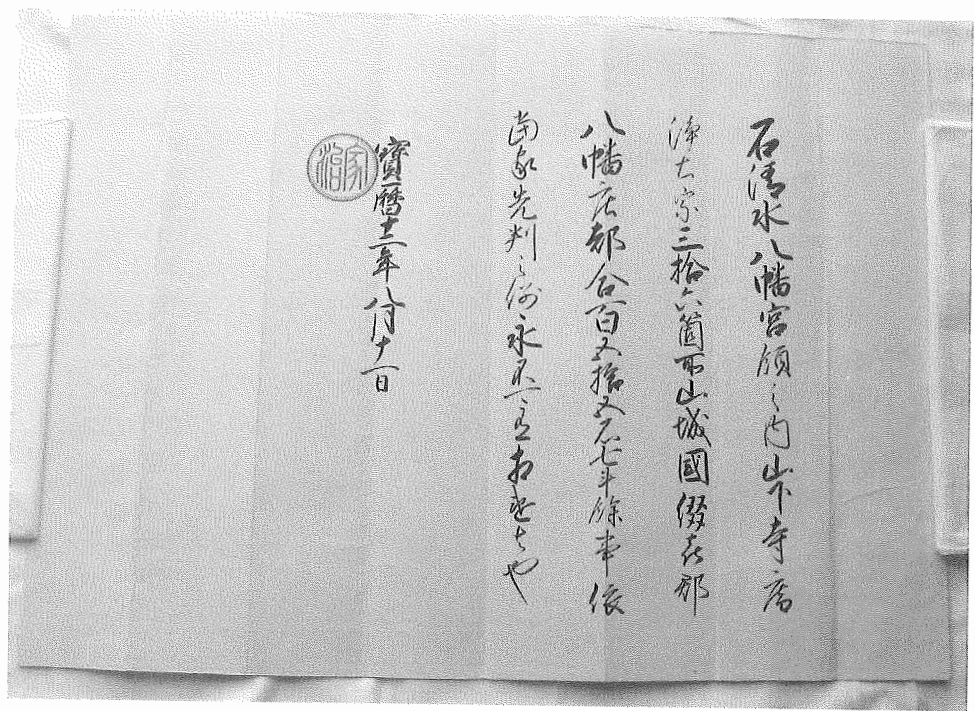 石清水八幡宮領之内山下寺庵
浄土宗三拾六箇所山城國綴喜郡
八幡庄都合百五拾五石七斗餘事依
當家先判之例永不可有相違者也
寳曆十二年八月十一日
家治